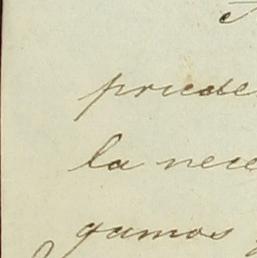 puede
la nece
gamos